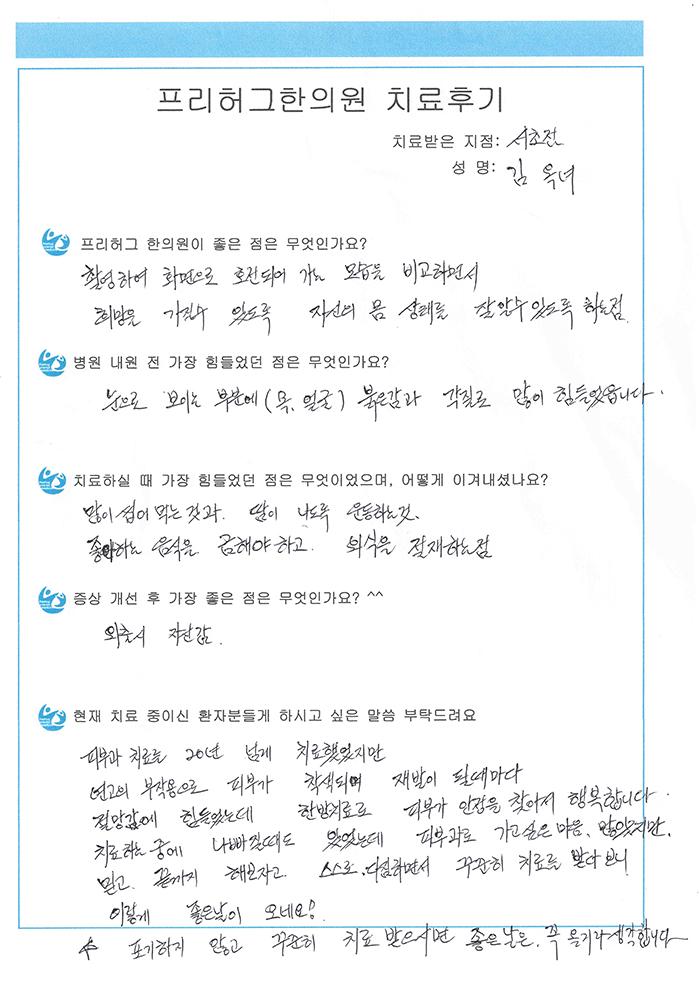 프리허그한의원 치료후기
치료받은 지점: 서초점
성 명: 김 옥녀
프리허그 한의원이 좋은 점은 무엇인가요?
촬영하여 화면으로 호전되어 가는 모습을 비교하면서
희망을 가질수 있도록 자신의 몸 상태를 잘 알수 있도록 하는점.
병원 내원 전 가장 힘들었던 점은 무엇인가요?
눈으로 보이는 부분에 (목, 얼굴) 붉은감과 각질로 많이 힘들었읍니다.
치료하실 때 가장 힘들었던 점은 무엇이었으며, 어떻게 이겨내셨나요?
많이 씹어 먹는것과. 땀이 나도록 운동하는것.
좋아하는 음식을 금해야 하고. 외식을 절재하는점
증상 개선 후 가장 좋은 점은 무엇인가요? ^^
외출시 자신감.
현재 치료 중이신 환자분들게 하시고 싶은 말씀 부탁드려요
피부과 치료를 20년 넘게 치료했었지만
연고의 부작용으로 피부가 착색되며 재발이 될때마다
절망감에 힘들었는데 한방치료로 피부가 안정을 찾아서 행복합니다.
치료하는 중에 나빠졌때도 있었는데 피부과로 가고싶은 마음. 많았지만.
믿고. 끝까지 해보자고. 스스로. 다짐하면서 꾸준히 치료를 받다보니
이렇게 좋은날이 오네요!
포기하지 않고 꾸준히 치료 받으시면 좋은날은. 꼭 올거라 생각합니다